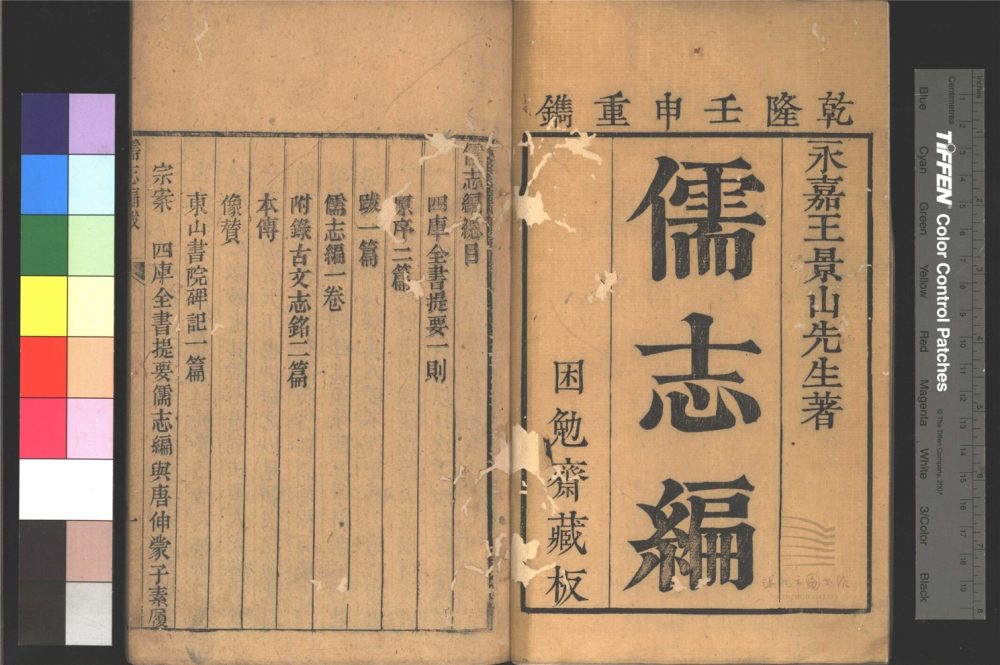 乾隆壬申重鐫
永嘉王景山先生著
儒志編
困勉齋藏板
儒志編總目
四庫全書提要一則
原序二篇
跋一篇
儒志編一卷
附錄古文志銘二篇
本傳
像贊
東山書院碑記一篇
宗案 四庫全書提要儒志編與唐伸蒙子素履
儒志編
一
TIFFEN Color Control Patches
© The Tiffen Company, 2007
Inches
Centimetres
Blue
Cyan
Green
Yellow
Red
Magenta
White
3/Color
Black